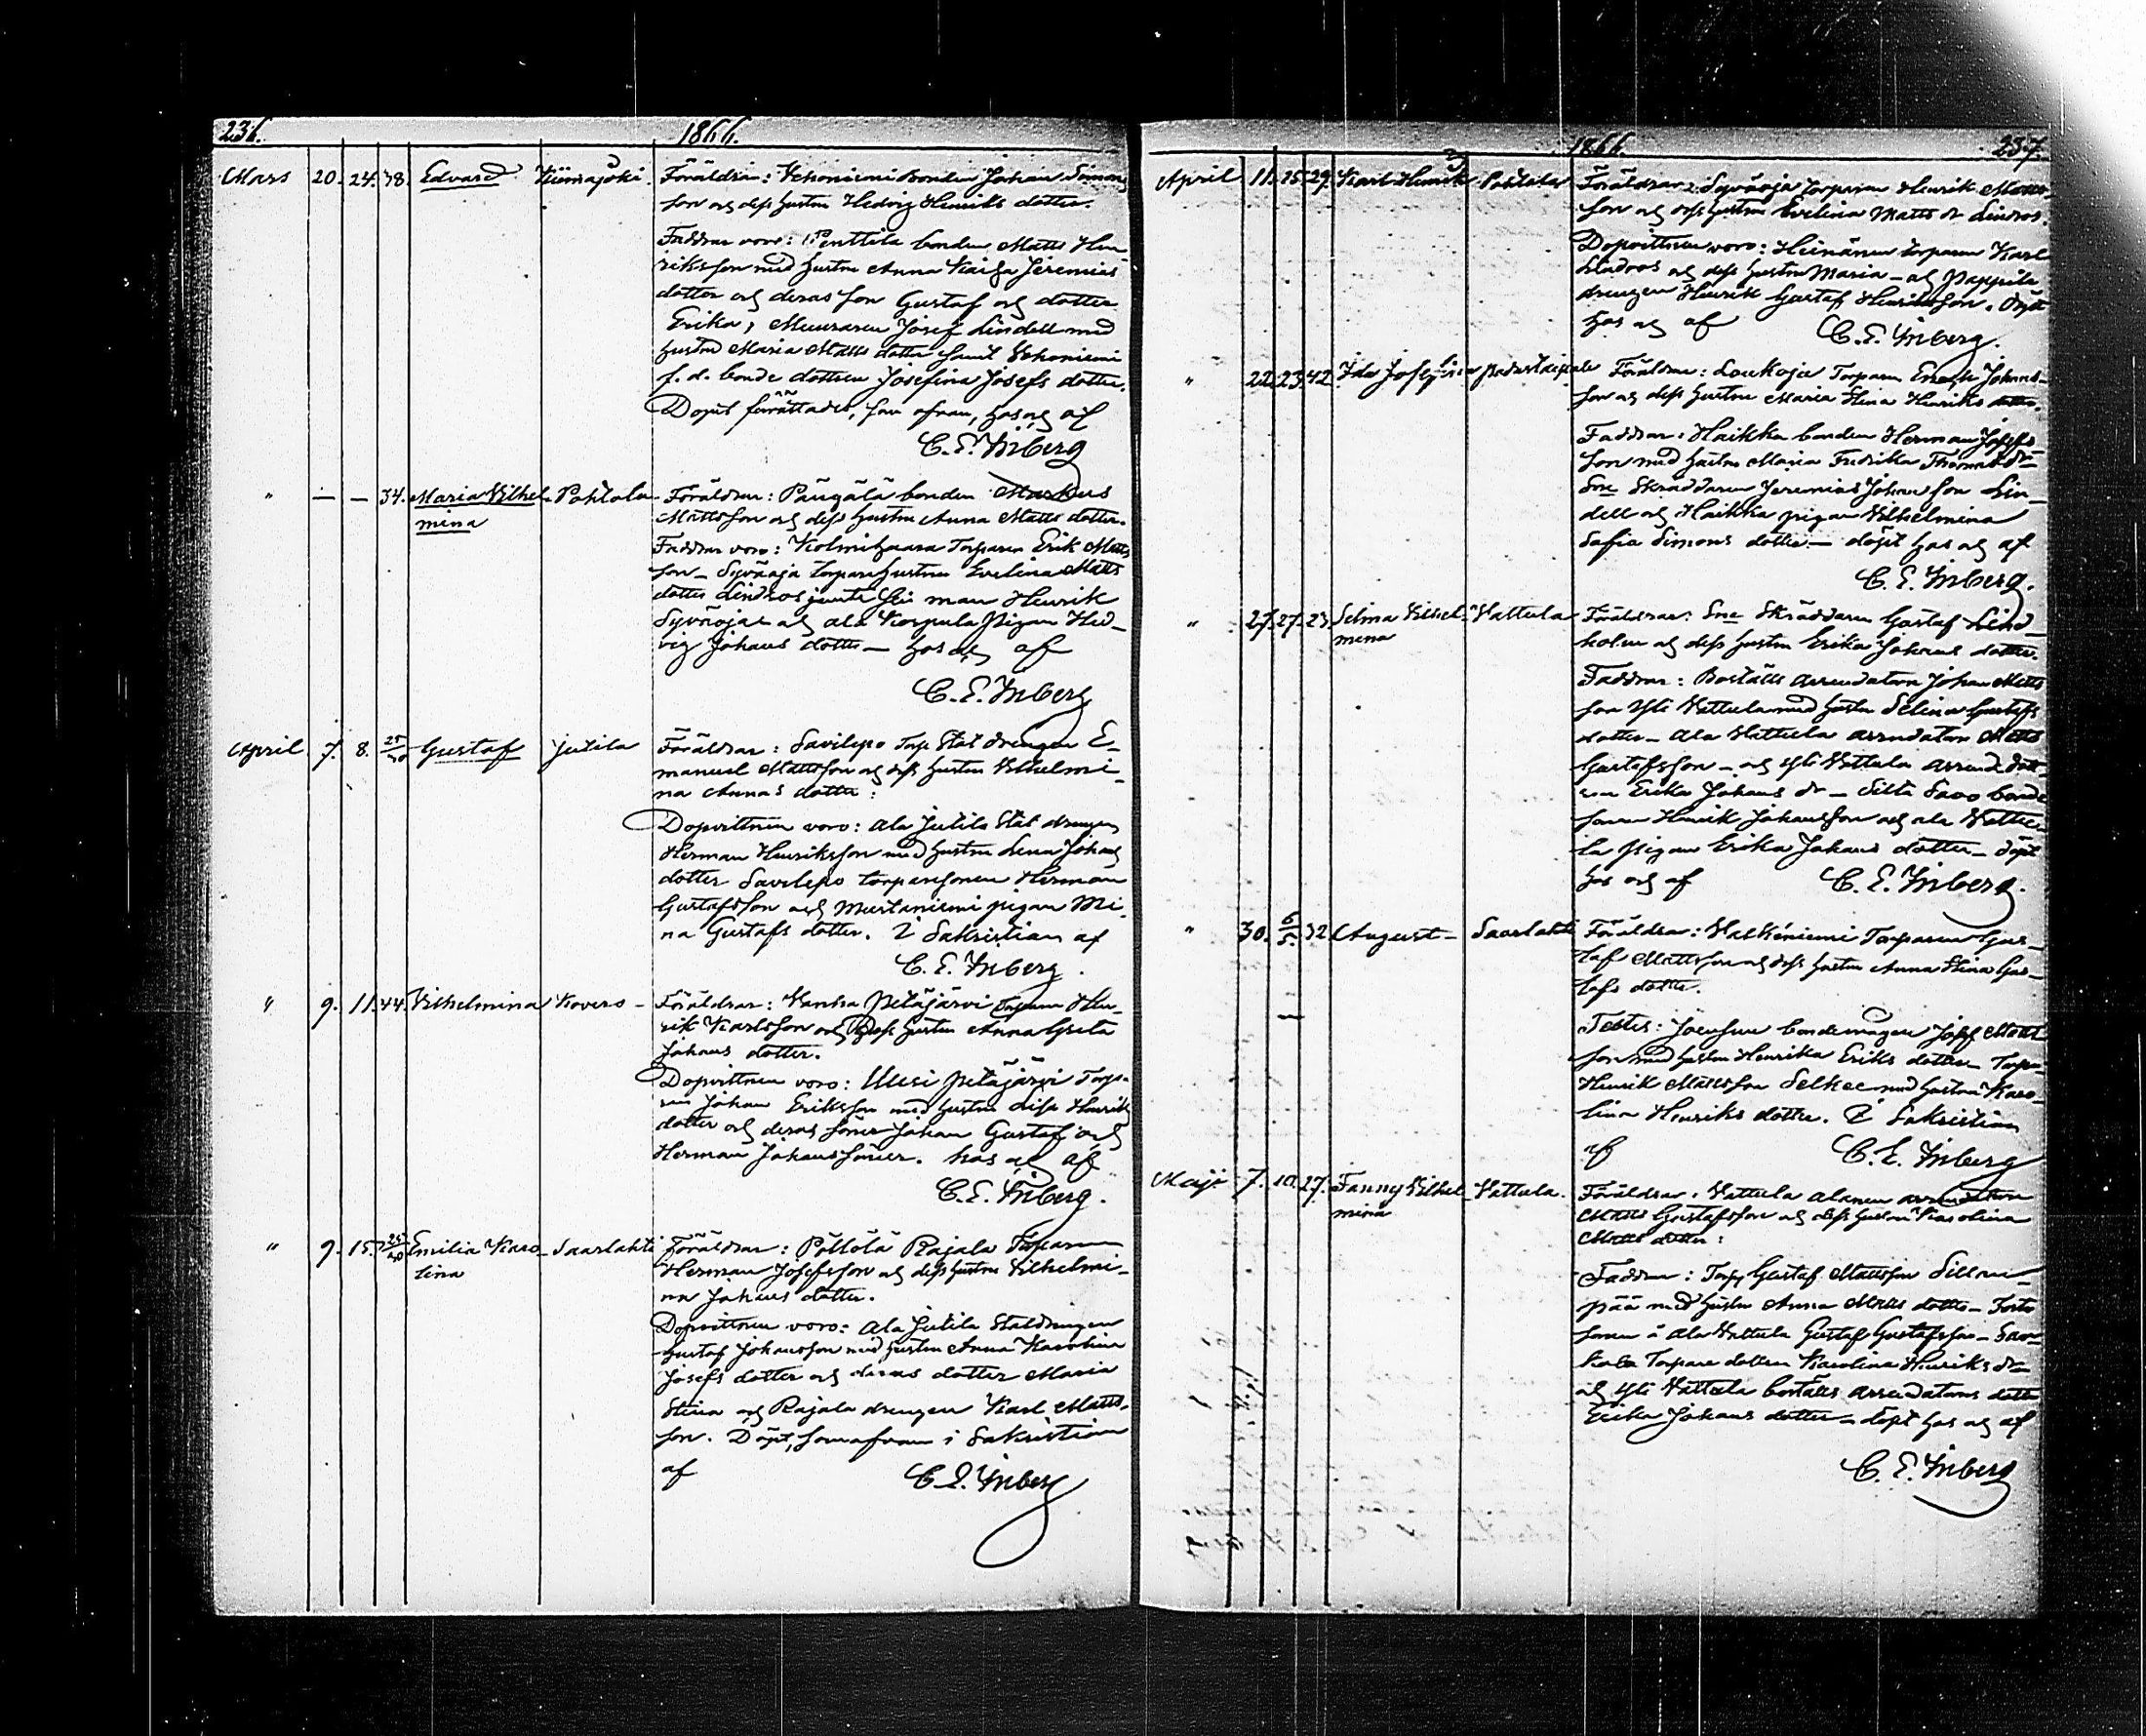 236. 1866.
Mars 20. 24. 38. Edvard Kiimajoki. Föräldrar: Vehoniemi bonden Johan Simons
son och dess hustru Hedvig Henriks dotter.
Faddrar voro: Penttilä bonden Matts Hen
riksson med hustru Anna Kaisa Jeremias
dotter och deras son Gustaf och dotter
Erika, Muuraren Josef Lindell med
hustru Maria Matts dotter samt Vehoniemi
f. d. bonde dottren Josefina Josefs dotter.
Dopet förrättades, som ofvan, hos och af
C. E. Inberg
" — — 34. Maria Vilhel- Pohtola Föräldrar: Pängälä bonden Markus
mina Mattsson och dess hustru Anna Matts dotter.
Faddrar voro: Torparen Erik Matts
son – Syväoja torpare hustrun Evelina Matts
dotter Lindros jemte sin man Henrik
Syväoja och ala Korpula pigan Hed-
vig Johans dotter — hos och af
C. E. Inberg
April 7. 8. 25/40 Gustaf Jutila Föräldrar: Savilepo Torp Stat drengen E-
manuel Mattsson och dess hustru Vilhelmi-
na Annas dotter:
Dopvittnen voro: ala Jutila Stat drengen
Herman Henriksson med hustru Lena Johans
dotter Savilepo torparesonen Herman
Gustafsson och Mustaniemi pigan Mi-
na Gustafs dotter. I Sakristian af
C. E. Inberg.
" 9. 11. 44. Vilhelmina Kovero – Föräldrar: Vanha Petäjärvi Torparen Hen-
rik Karlsson och dess hustru Anna Greta
Johans dotter.
Dopvittnen voro: Uusi Petäjärvi Torpa-
ren Johan Eriksson med hustru Lisa Henriks
dotter och deras söner Johan Gustaf och
Herman Johanssöner. hos och af
C. E. Inberg.
" 9. 15. 25/40 Emilia Karo- Saarlahti Föräldrar: Pöllölä Rajala Torparen
lina Herman Josefsson och dess hustru Vilhelmi-
na Johans dotter.
Dopvittnen voro: ala Jutila Statdrengen
Gustaf Johansson med hustru Anna Karolina
Josefs dotter och deras dotter Maria
Stina och Rajala drengen Karl Matts-
son. Döpt, som ofvan i Sakristian
af C. E. Inberg
1866. 237.
April 11. 15. 29. Karl Henrik Pohtola Föräldrar: Syväoja Torparen Henrik Matts
son och dess hustru Evelina Matts dr Lindros.
Dopvittnen voro: Heinänen torparen Karl
och dess hustru Maria – och Pappila
drengen Henrik Gustaf Henriksson. Döpt
hos och af C. E. Inberg.
" 22. 23. 42. Ida Josefina Föräldrar: Loukoja Torparen Enok Johans-
son och dess hustru Maria Stina Henriks dotter.
Faddrar: Haikka bonden Herman Josefs
son med hustru Maria Fredrika Thomas dr –
Sne Skräddaren Jeremias Johansson Lin-
dell och Haikka pigan Vilhelmina
Sofia Simons dotter — döpt hos och af
C. E. Inberg.
" 27. 27. 23. Selma Vilhel- Vattula Föräldrar: Sne Skräddaren Gustaf Lind-
mina holm och dess hustru Erika Johans dotter.
Faddrar: Boställs arrendatorn Johan Matts
son Yli Vattula med hustru Selina Gustafs
dotter – Ala Vattula arrendatorn Matts
Gustafsson – och Yli Vattula arrend. dott-
ren Erika Johans dr – Silta Savo bonde
sonen Henrik Johansson och ala Vattu-
la pigan Erika Johans dotter – döpt
hos och af C. E. Inberg.
" 30. 6/5. 32. August – Saarlahti Föräldrar: Valkeniemi Torparen Gus-
taf Mattsson och dess hustru Anna Stina Gus-
tafs dotter.
Testes: Joensuu bondemågen Josef Matts
son med hustru Henrika Eriks dotter – Torp.
Henrik Mattsson Selkee med hustru Karo-
lina Henriks dotter. I Sakristian
af C. E. Inberg
Maji 7. 10. 27. Fanny Vilhel- Vattula. Föräldrar: Vattula alanen arrendatorn
mina Matts Gustafsson och dess hustru Karolina
Matts dotter:
Faddrar: Torp. Gustaf Mattsson Sillan-
pää med hustru Anna Matts dotter –
sonen i Ala Vattula Gustaf Gustafsson –
Torpare dottren Karolina Henriks dr –
och Yli Vattula boställs arrendators dotter
Erika Johans dotter – döpt hos och af
C. E. Inberg